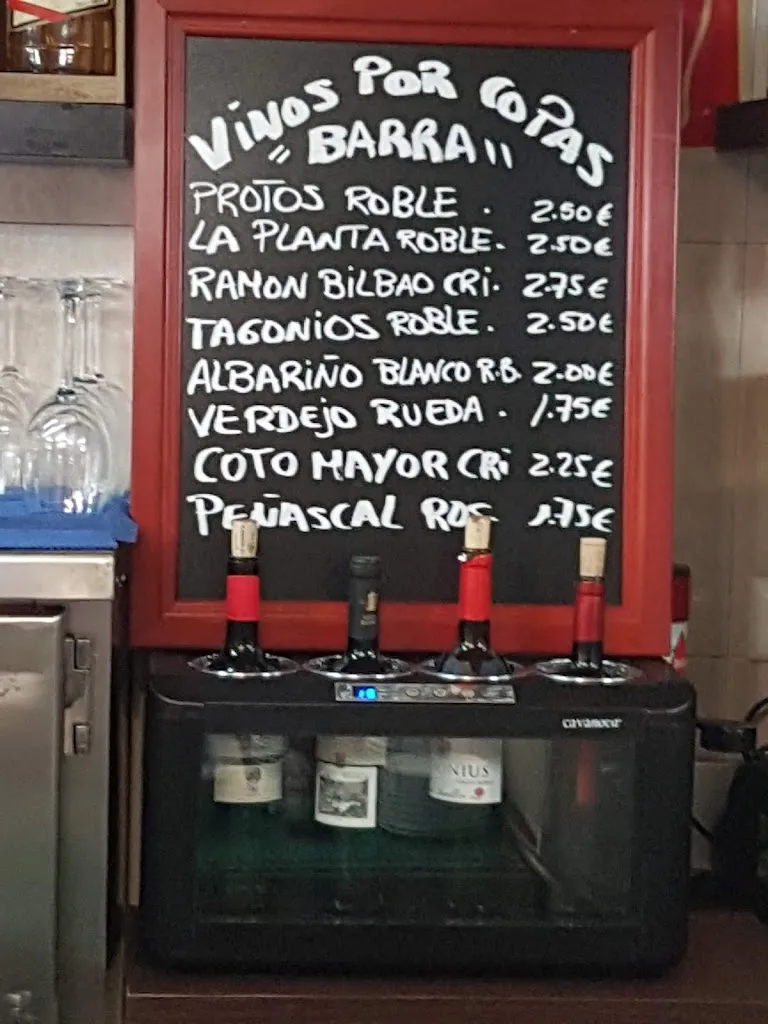 ViNOS POR COPAS
"BARRA"
PROTOS ROBLE . 2.50€
LA PLANTA ROBLE. 2.50€
RAMON BILBAO CRi. 2.75€
TAGONiOS ROBLE. 2.50€
ALBARiÑO BLANCO R.B. 2.00€
VERDEJO RUEDA . 1.75€
COTO MAYOR CRi 2.25€
PEÑASCAL ROS. 1.75€
cavanova
NIUS